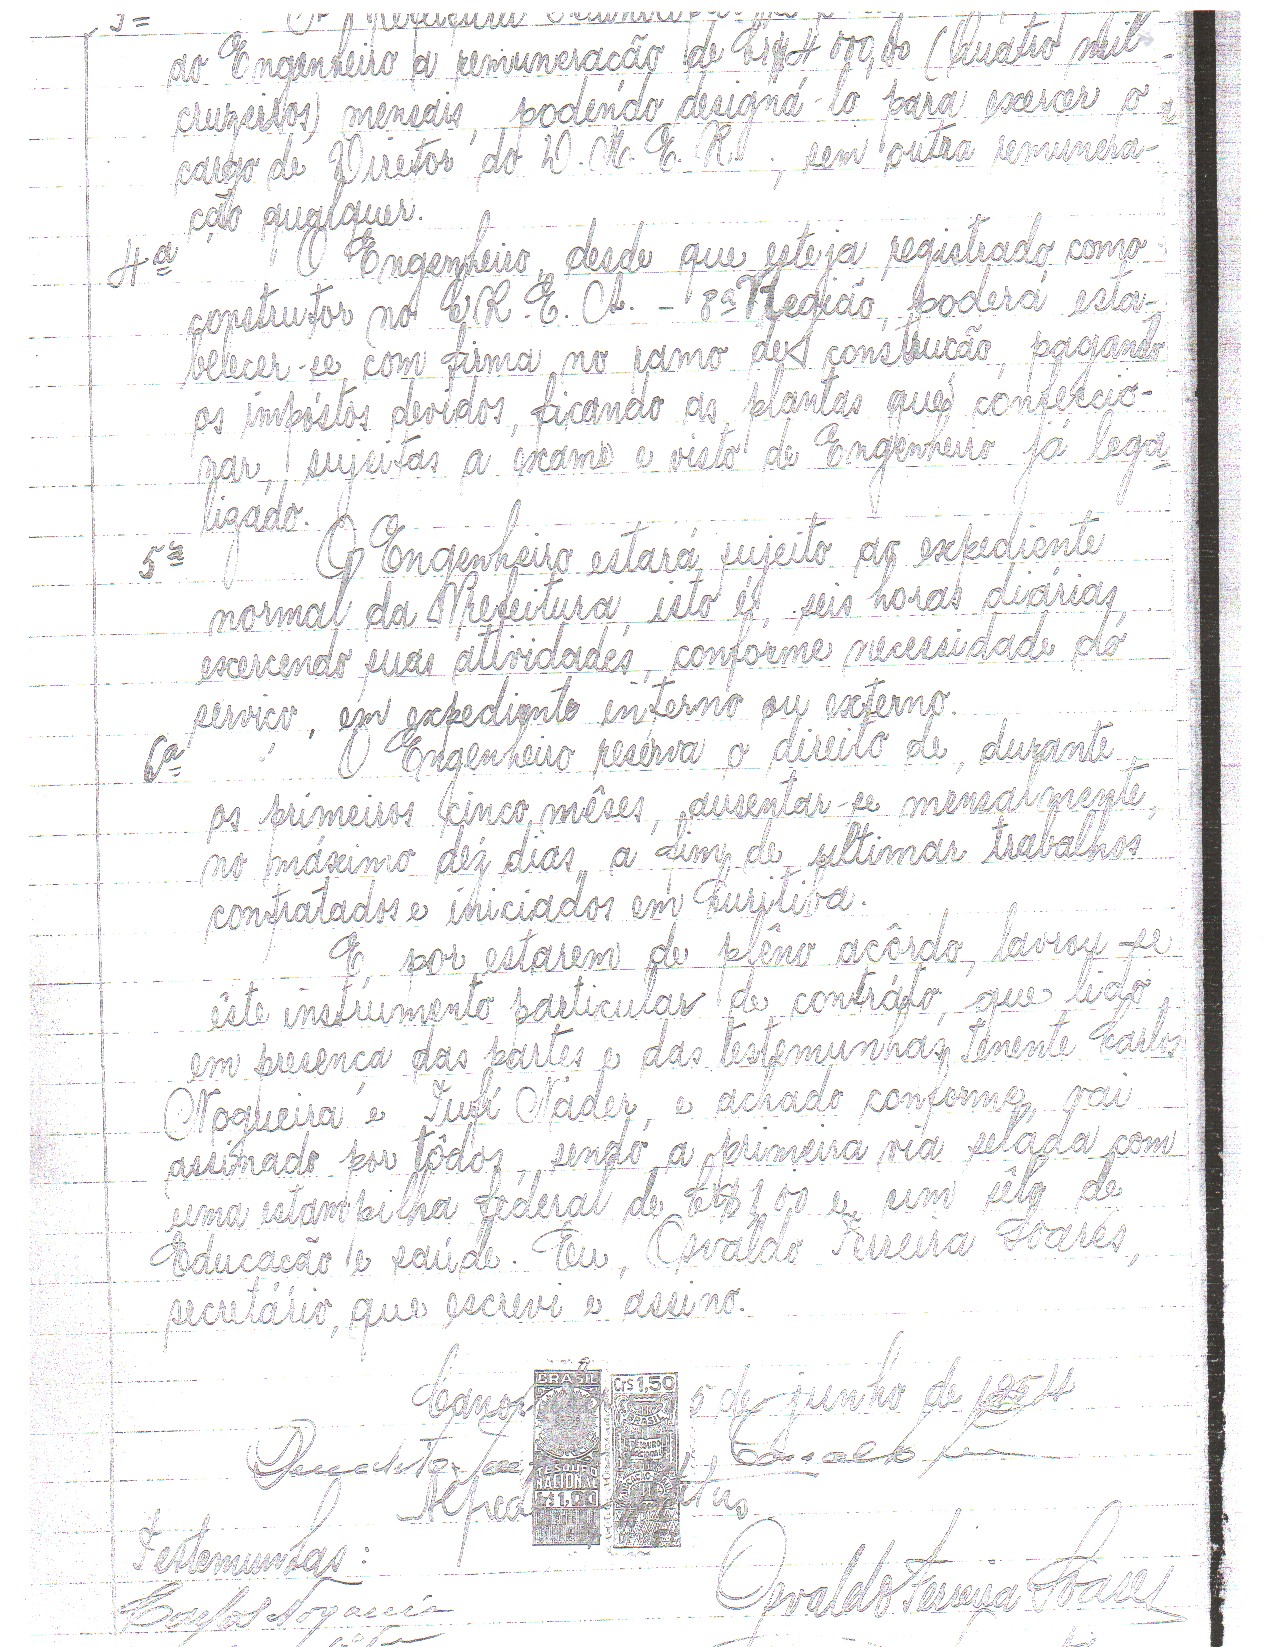 3ª O Prefeitura
ao Engenheiro a remuneração de Cr$4.000,00 (Quatro mil
cruzeiros) mensais, podendo designá-lo para exercer o
cargo de Diretor do D. M. E. R., sem outra remunera-
ção qualquer.
4ª O Engenheiro, desde que esteja registrado como
construtor no C.R.E.A. - 8ª Região, poderá esta-
belecer-se com firma no ramo de construcão, pagando
os impóstos devidos, ficando as plantas que confeccio-
nar, sujeitas a exame e visto de Engenheiro já lega-
lizado.
5ª O Engenheiro estará sujeito ao expediente
normal da Prefeitura, isto é, seis horas diárias,
exercendo suas atividades, conforme necessidade do
servico, em expediente interno ou externo.
6ª O Engenheiro reserva o direito de, durante
os primeiros cinco mêses, ausentar-se mensalmente,
no máximo dez dias, a fim de ultimar trabalhos
contratados e iniciados em Curitiba.
E, por estarem de plêno acôrdo, lavrou-se
êste instrumento particular de contráto, que lido
em presenca das partes e das testemunhas, Tenente Carlos
Nogueira e Nader, e achado conforme, vai
assinado por tôdos, sendo a primeira via selada com
uma estampilha federal de e um sêlo de
Educacão e saúde. Eu, Osvaldo Ferreira Soares,
secretário, que escrevi e assino.
5 de junho de 1954
BRASIL
TESOURO
NACIONAL
Cr$1,00
Cr$1,50
BRASIL
Testemunhas:
Carlos Nogueira
Osvaldo Ferreira Soares